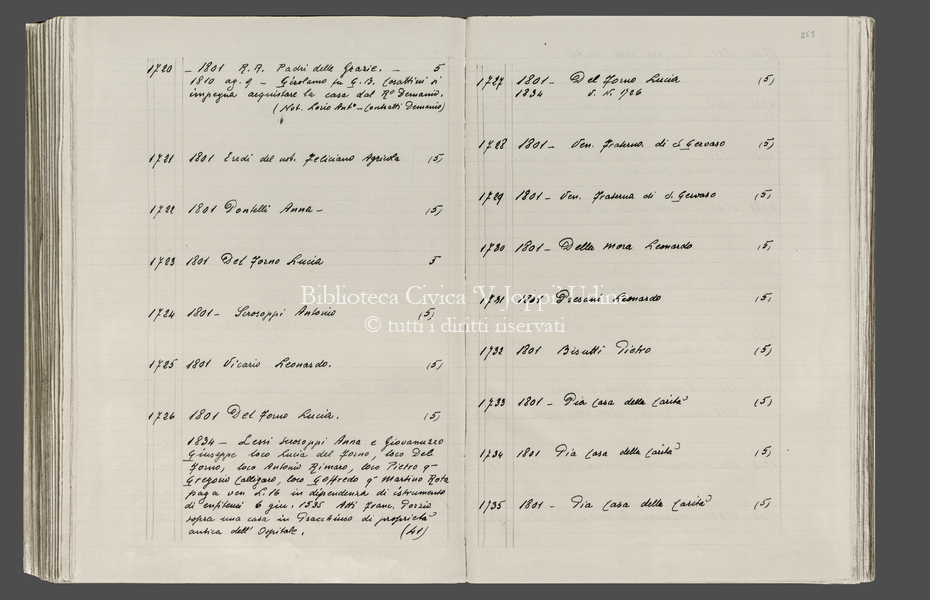 1720 - 1801 R.R. Padri delle Grazie. - 5
1810 ag. 9 - Girolamo fu G.B. Corattini si
impegna acquistare la casa dal R° Demanio.
(Not. Lorio Ant° - Contratti Demanio)
1721 1801 Eredi del nob. Feliciano Agricola (5)
1722 1801 Pontelli Anna - (5)
1723 1801 Del Forno Lucia 5
1724 1801 - Scrosoppi Antonio (5)
1725 1801 Vicario Leonardo. (5)
1726 1801 Del Forno Lucia. (5)
1834 - Lessi Scrosoppi Anna e
Giuseppe loco Lucia del Forno, loco Del
Forno, loco Antonio Rimaro, loco Pietro q.
Gregorio Calligaro, loco Goffredo q. Martino Rota
paga ven L. 16 in dipendenza di istrumento
di enfiteusi 6 giu. 1535 Atti Franc. Porzio
sopra una casa in Gracchiuso di proprietà
antica dell' Ospitale. (41)
253
1727 1801 - Del Forno Lucia (5)
1834 S. N. 1726
1728 1801 - Ven. Fraterna di S Gervaso (5)
1729 1801 - Ven. Fraterna di S. Gervaso (5)
1730 1801 - Della Mora Leonardo (5)
1731 1801 Leonardo (5)
1732 1801 Bisutti Pietro (5)
1733 1801 - Pia Casa della Carità (5)
1734 1801 Pia Casa della Carità (5)
1735 1801 - Pia Casa della Carità (5)
Biblioteca Civica 'V. Joppi' Udine
© tutti i diritti riservati